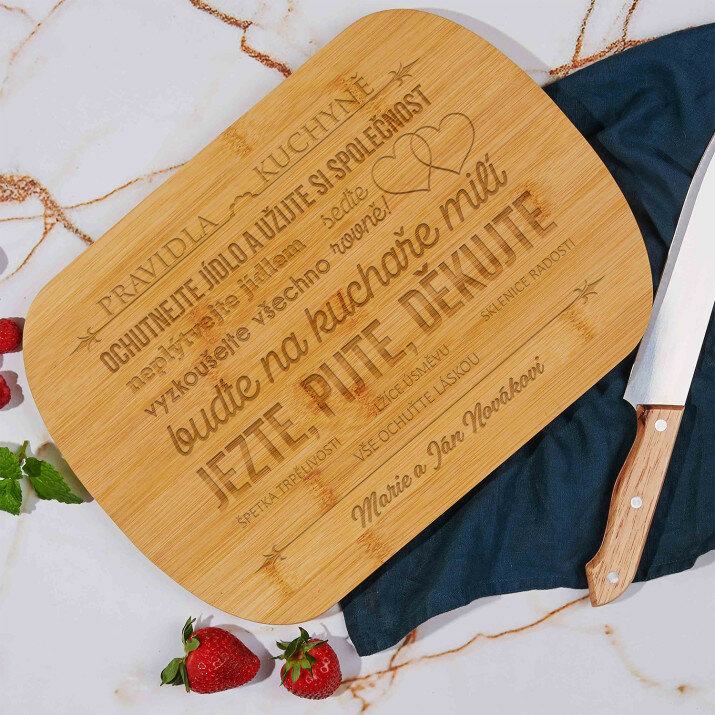 PRAVIDLA KUCHYNĚ
OCHUTNEJTE JÍDLO A UŽIJTE SI SPOLEČNOST
neplýtvejte jídlem seďte
vyzkoušejte všechno rovně!
buďte na kuchaře milí
JEZTE, PIJTE, DĚKUJTE
ŠPETKA TRPĚLIVOSTI LŽÍCE ÚSMĚVU SKLENICE RADOSTI
VŠE OCHUŤTE LÁSKOU
Marie a Ján Novákovi